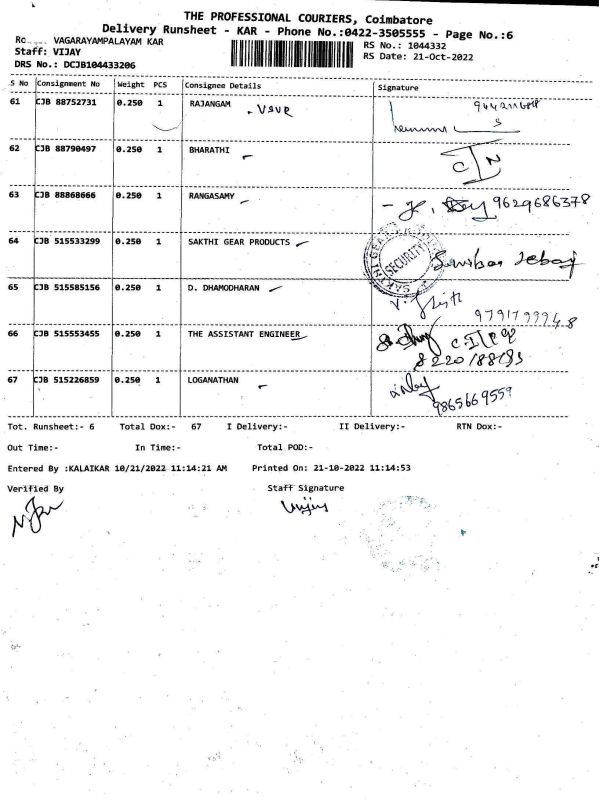 THE PROFESSIONAL COURIERS, Coimbatore
Delivery Runsheet - KAR - Phone No.:0422-3505555 - Page No.:6
VAGARAYAMPALAYAM KAR
RS No.: 1044332
Staff: VIJAY
RS Date: 21-Oct-2022
DRS No.: DCJB104433206
S No Consignment No Weight PCS Consignee Details Signature
61 CJB 88752731 0.250 1 RAJANGAM
62 CJB 88790497 0.250 1 BHARATHI
63 CJB 88868666 0.250 1 RANGASAMY 9629686378
64 CJB 515533299 0.250 1 SAKTHI GEAR PRODUCTS SECURITY
65 CJB 515585156 0.250 1 D. DHAMODHARAN
66 CJB 515553455 0.250 1 THE ASSISTANT ENGINEER
67 CJB 515226859 0.250 1 LOGANATHAN
9865669559
Tot. Runsheet:- 6 Total Dox:- 67 I Delivery:- II Delivery:- RTN Dox:-
Out Time:- In Time:- Total POD:-
Entered By :KALAIKAR 10/21/2022 11:14:21 AM Printed On: 21-10-2022 11:14:53
Verified By Staff Signature